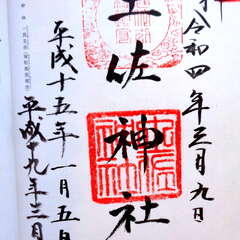 令和四年三月九日
土佐神社
平成十五年一月五日
平成十九年三月